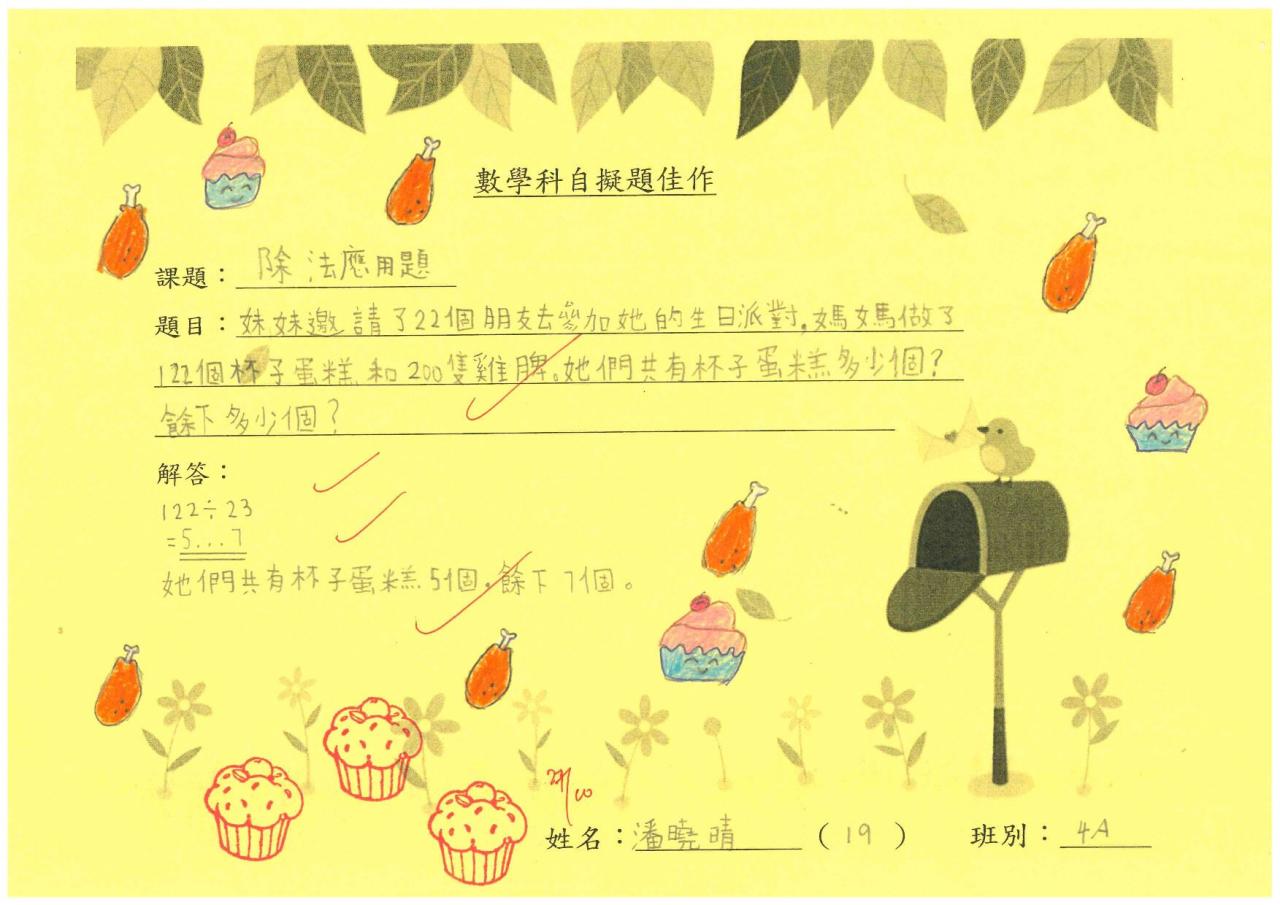 數學科自擬題佳作
課題：除法應用題
題目：妹妹邀請了22個朋友去參加她的生日派對,媽媽做了
122個杯子蛋糕和200隻雞脾。她們共有杯子蛋糕多少個?
餘下多少個?
解答：
122÷23
=5...7
她們共有杯子蛋糕5個,餘下7個。
姓名：潘曉晴 (19) 班別：4A